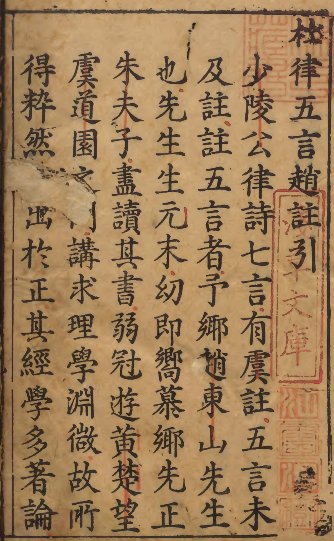 杜律五言趙註引
少陵公律詩七言有虞註五言未
及註註五言者予鄉趙東山先生
也先生生元末幼即嚮慕鄉先正
朱夫子盡讀其書弱冠遊黃楚望
虞道園之門講求理學淵微故所
得粹然出於正其經學多著論
文庫